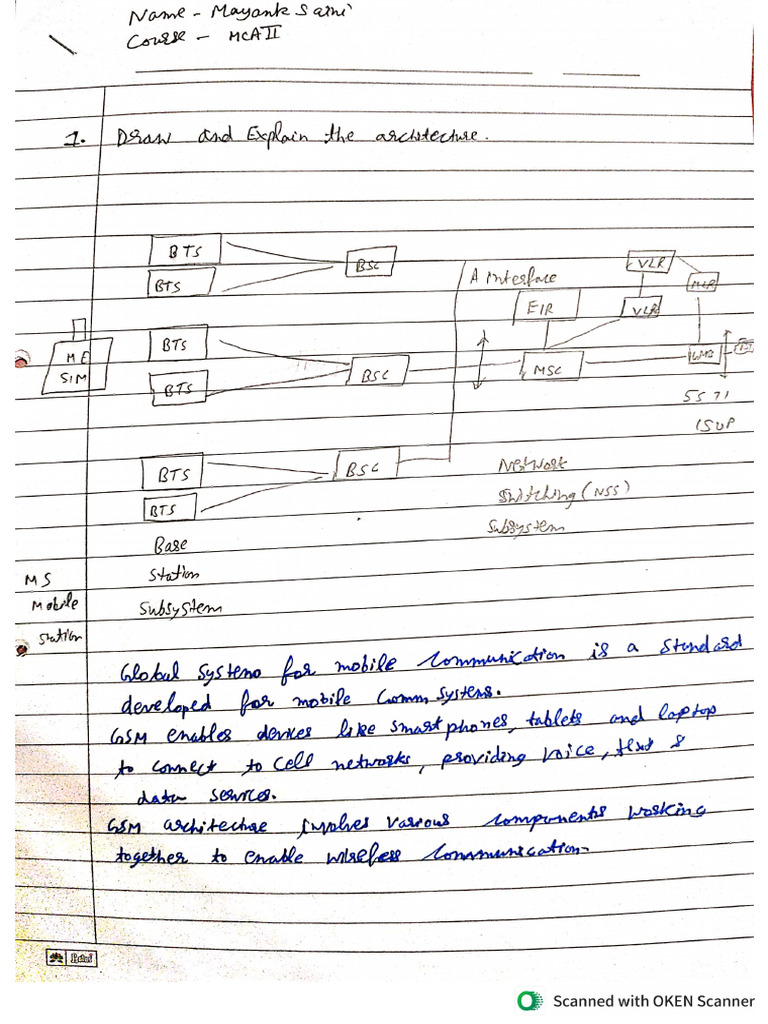 Name - Mayank Saini
Course - MCA II
1. Draw and Explain the architecture.
BTS
BTS
BSC
A interface
VLR
EIR
VLR
ME
SIM
BTS
BTS
BSC
MSC
SS 71
ISUP
BTS
BTS
BSC
Network
Switching (NSS)
Subsystem
Base
Station
Subsystem
MS
Mobile
Station
Global System for mobile Communication is a standard
developed for mobile Comm systems.
GSM enables devices like smartphones, tablets and laptop
to connect to cell networks, providing voice, text &
data services.
GSM architecture involves various components working
together to enable wireless communication.
Scanned with OKEN Scanner